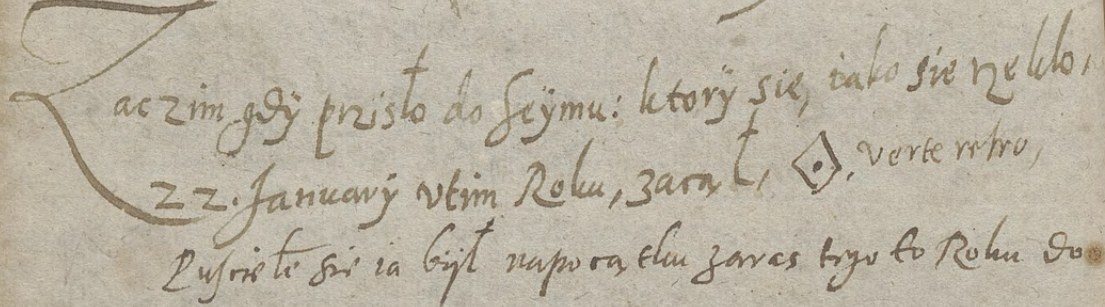 Zaczim gdÿ przisło do Seÿmu: ktorÿ się, iako sie rzekło,
22. Januarÿ vtim Roku, zacął, verte retro,
Puściełe sie ia bÿł napocątku zaras tego to Roku do